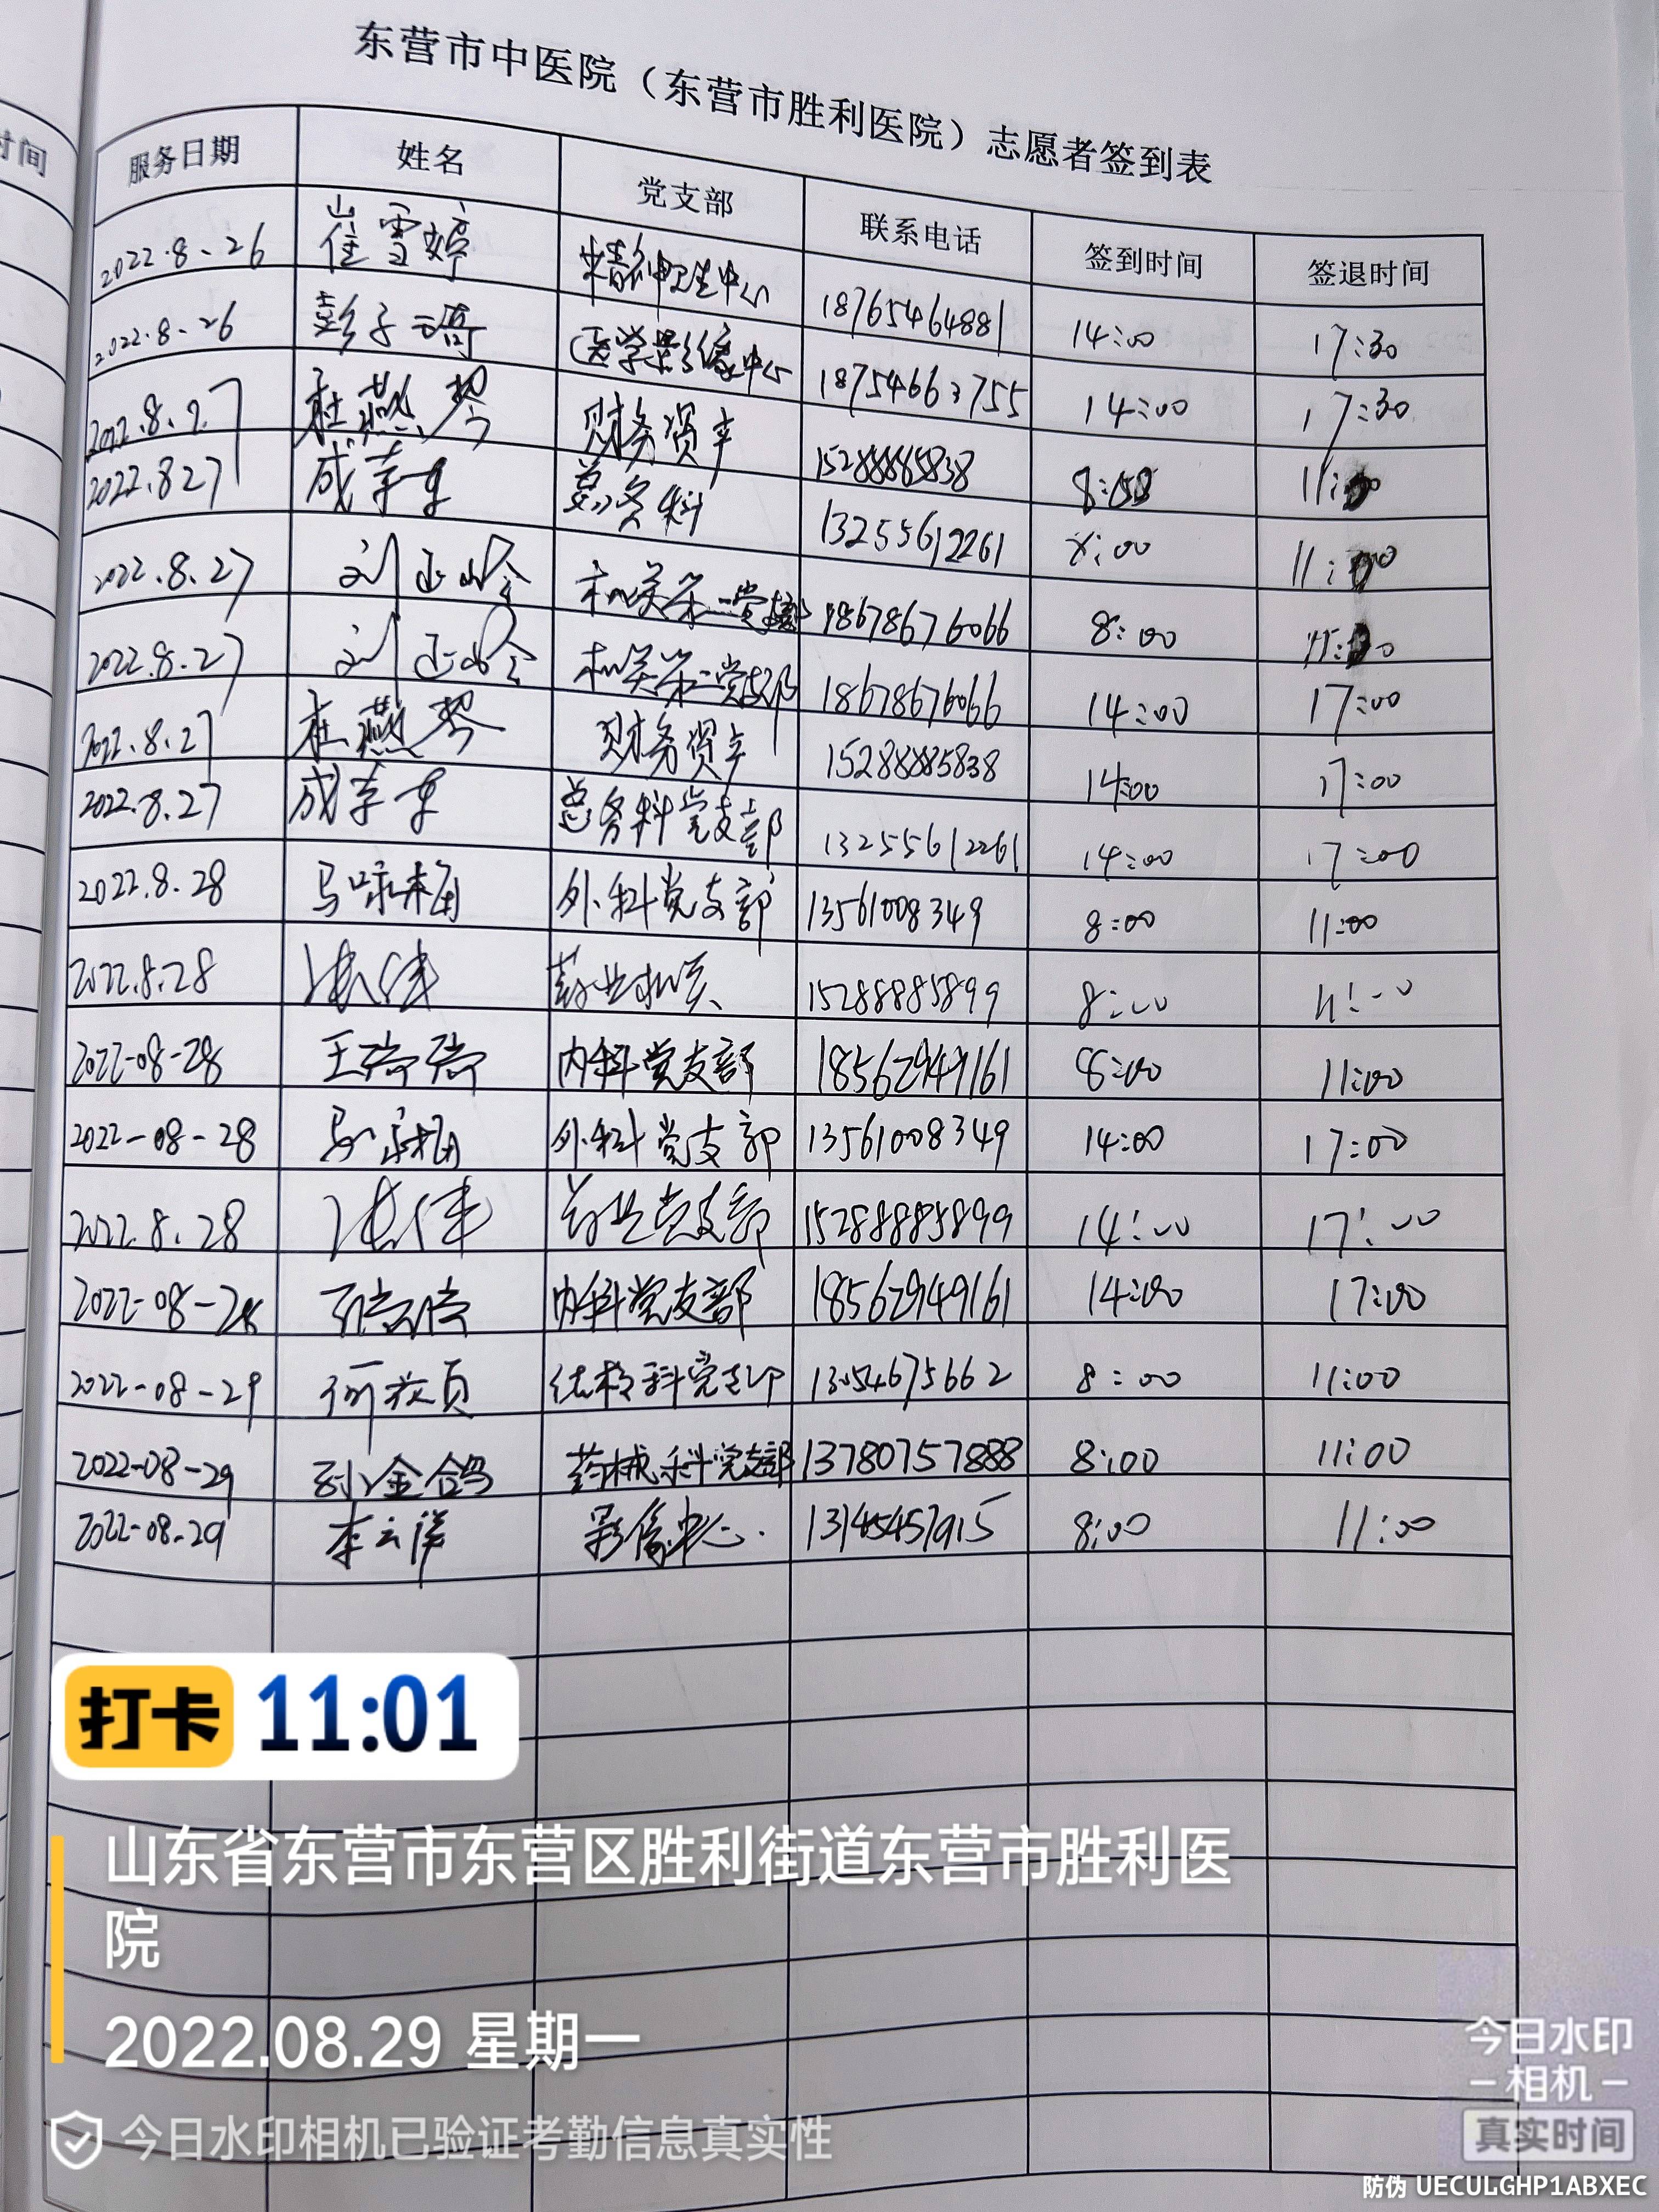 时间
东营市中医院（东营市胜利医院）志愿者签到表
服务日期 姓名 党支部 联系电话 签到时间 签退时间
2022.8.26 崔雪婷 精神卫生中心 18765464881 14:00 17:30
2022.8.26 彭子 医学影像中心 18754663755 14:00 17:30
2022.8.27 杜燕琴 财务资产 15288885838 8:00 11:00
2022.8.27 成 总务科 13255612261 8:00 11:00
2022.8.27 刘 机关第二党支部 18678676066 8:00 11:00
2022.8.27 刘 机关第二党支部 18678676066 14:00 17:00
2022.8.27 杜燕琴 财务资产 15288885838 14:00 17:00
2022.8.27 成 总务科党支部 13255612261 14:00 17:00
2022.8.28 马 外科党支部 13561008349 8:00 11:00
2022.8.28 张伟 15288885899 8:00 11:00
2022-08-28 王 内科党支部 18562949161 8:00 11:00
2022-08-28 马 外科党支部 13561008349 14:00 17:00
2022.8.28 张伟 党支部 15288885899 14:00 17:00
2022-08-28 内科党支部 18562949161 14:00 17:00
2022-08-29 结核科党支部 13054675662 8:00 11:00
2022-08-29 孙金鸽 药械科党支部 13780757888 8:00 11:00
2022-08-29 李云洋 影像中心. 8:00 11:00
打卡 11:01
山东省东营市东营区胜利街道东营市胜利医
院
2022.08.29 星期一
今日水印相机已验证考勤信息真实性
今日水印
-相机-
真实时间
防伪 UECULGHP1ABXEC